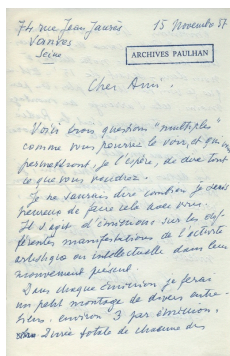 74 rue Jean Jaurès
15 Novembre 57
Vanves
Seine
ARCHIVES PAULHAN
Cher Ami.
Voici trois questions "multiples"
comme vous pourrez le voir, et qui vous
permettront, je l'espère, de dire tout
ce que vous voudrez.
Je ne saurais dire combien je suis
heureux de faire cela avec vous.
Il s'agit d'émissions sur les dif-
férentes manifestations de l'activité
artistique ou intellectuelle dans leur
mouvement présent.
Dans chaque émission je ferai
un petit montage de divers entre-
tiens, environ 3 par émission,
Durée totale de chacune des